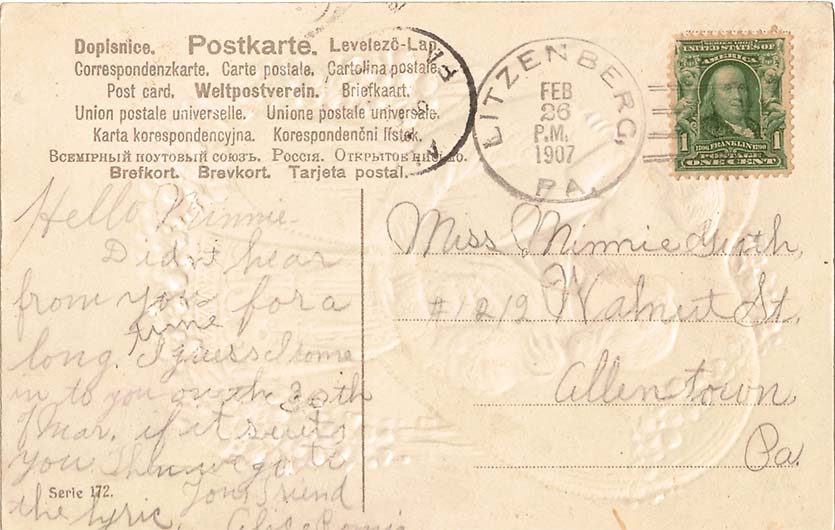 Dopisnice. Postkarte. Levelező-Lap.
Correspondenzkarte. Carte postale. Cartolina postale.
Post card. Weltpostverein. Briefkaart.
Union postale universelle. Unione postale universale.
Karta korespondencyjna. Korespondenční lístek.
Всемірный поутовый союзъ. Россія. Открытое письмо.
Brefkort. Brevkort. Tarjeta postal.
LITZENBERG,
FEB
26
P.M.
1907
PA.
PA
UNITED STATES OF
AMERICA
1 1706 FRANKLIN 1790 1
POSTAGE
ONE CENT
Hello Minnie-
Didn't hear
from you for a
time
long. I guess I come
in to you on the 30th
of Mar. if it suits
you then we go to
the lyric, Your Friend
Miss Minnie Guth,
#1212 Walnut St,
Allentown,
Pa.
Serie 172.